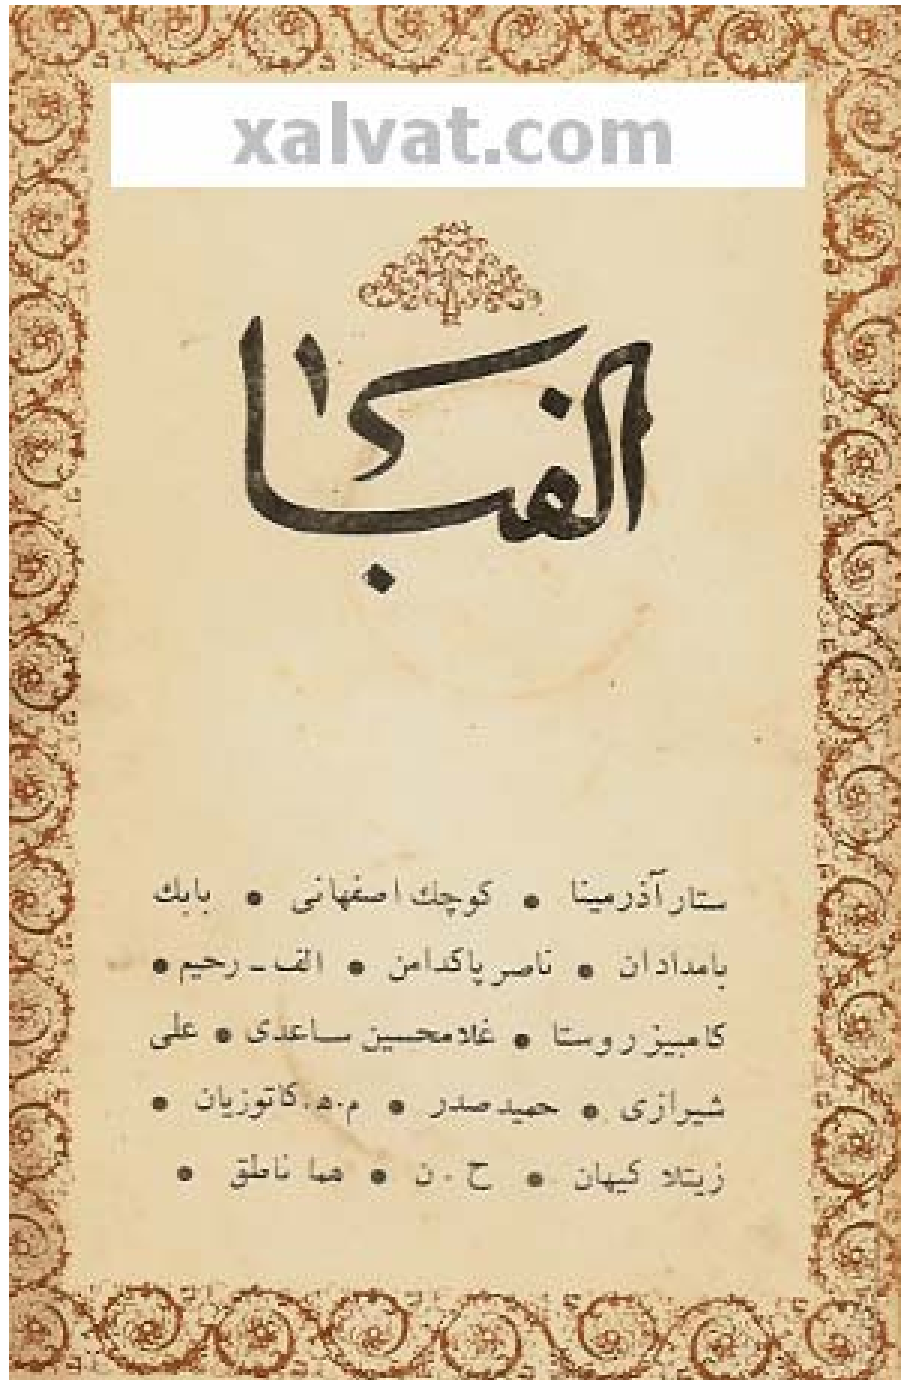 xalvat.com
الفبا
ستار آذرمینا ● کوچك اصفهانی ● بابك
بامدادان ● ناصر پاکدامن ● الف ـ رحیم ●
کامبیز روستا ● غلامحسین ساعدی ● علی
شیرازی ● حمید صدر ● م.ه. کاتوزیان ●
زیتلا کیهان ● ح . ن ● هما ناطق ●